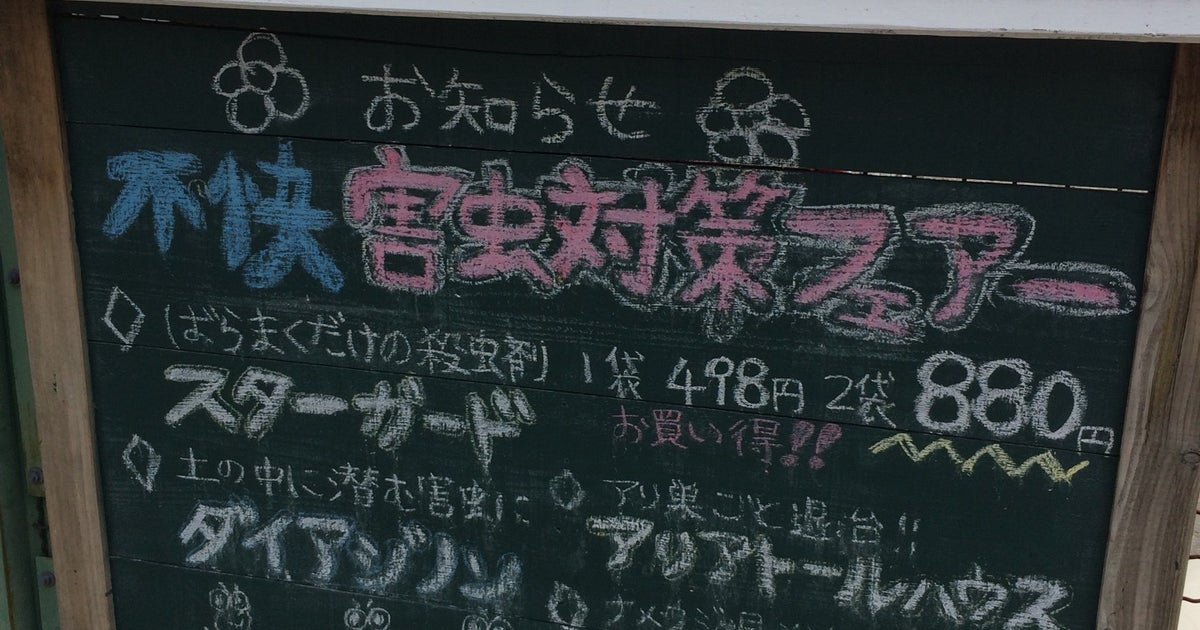 お知らせ
不快害虫対策フェアー
ばらまくだけの殺虫剤 1袋 498円 2袋 880円
スターガード お買い得!!
土の中に潜む害虫に
ダイアジノン
アリ巣ごと退治!!
アリアトールハウス